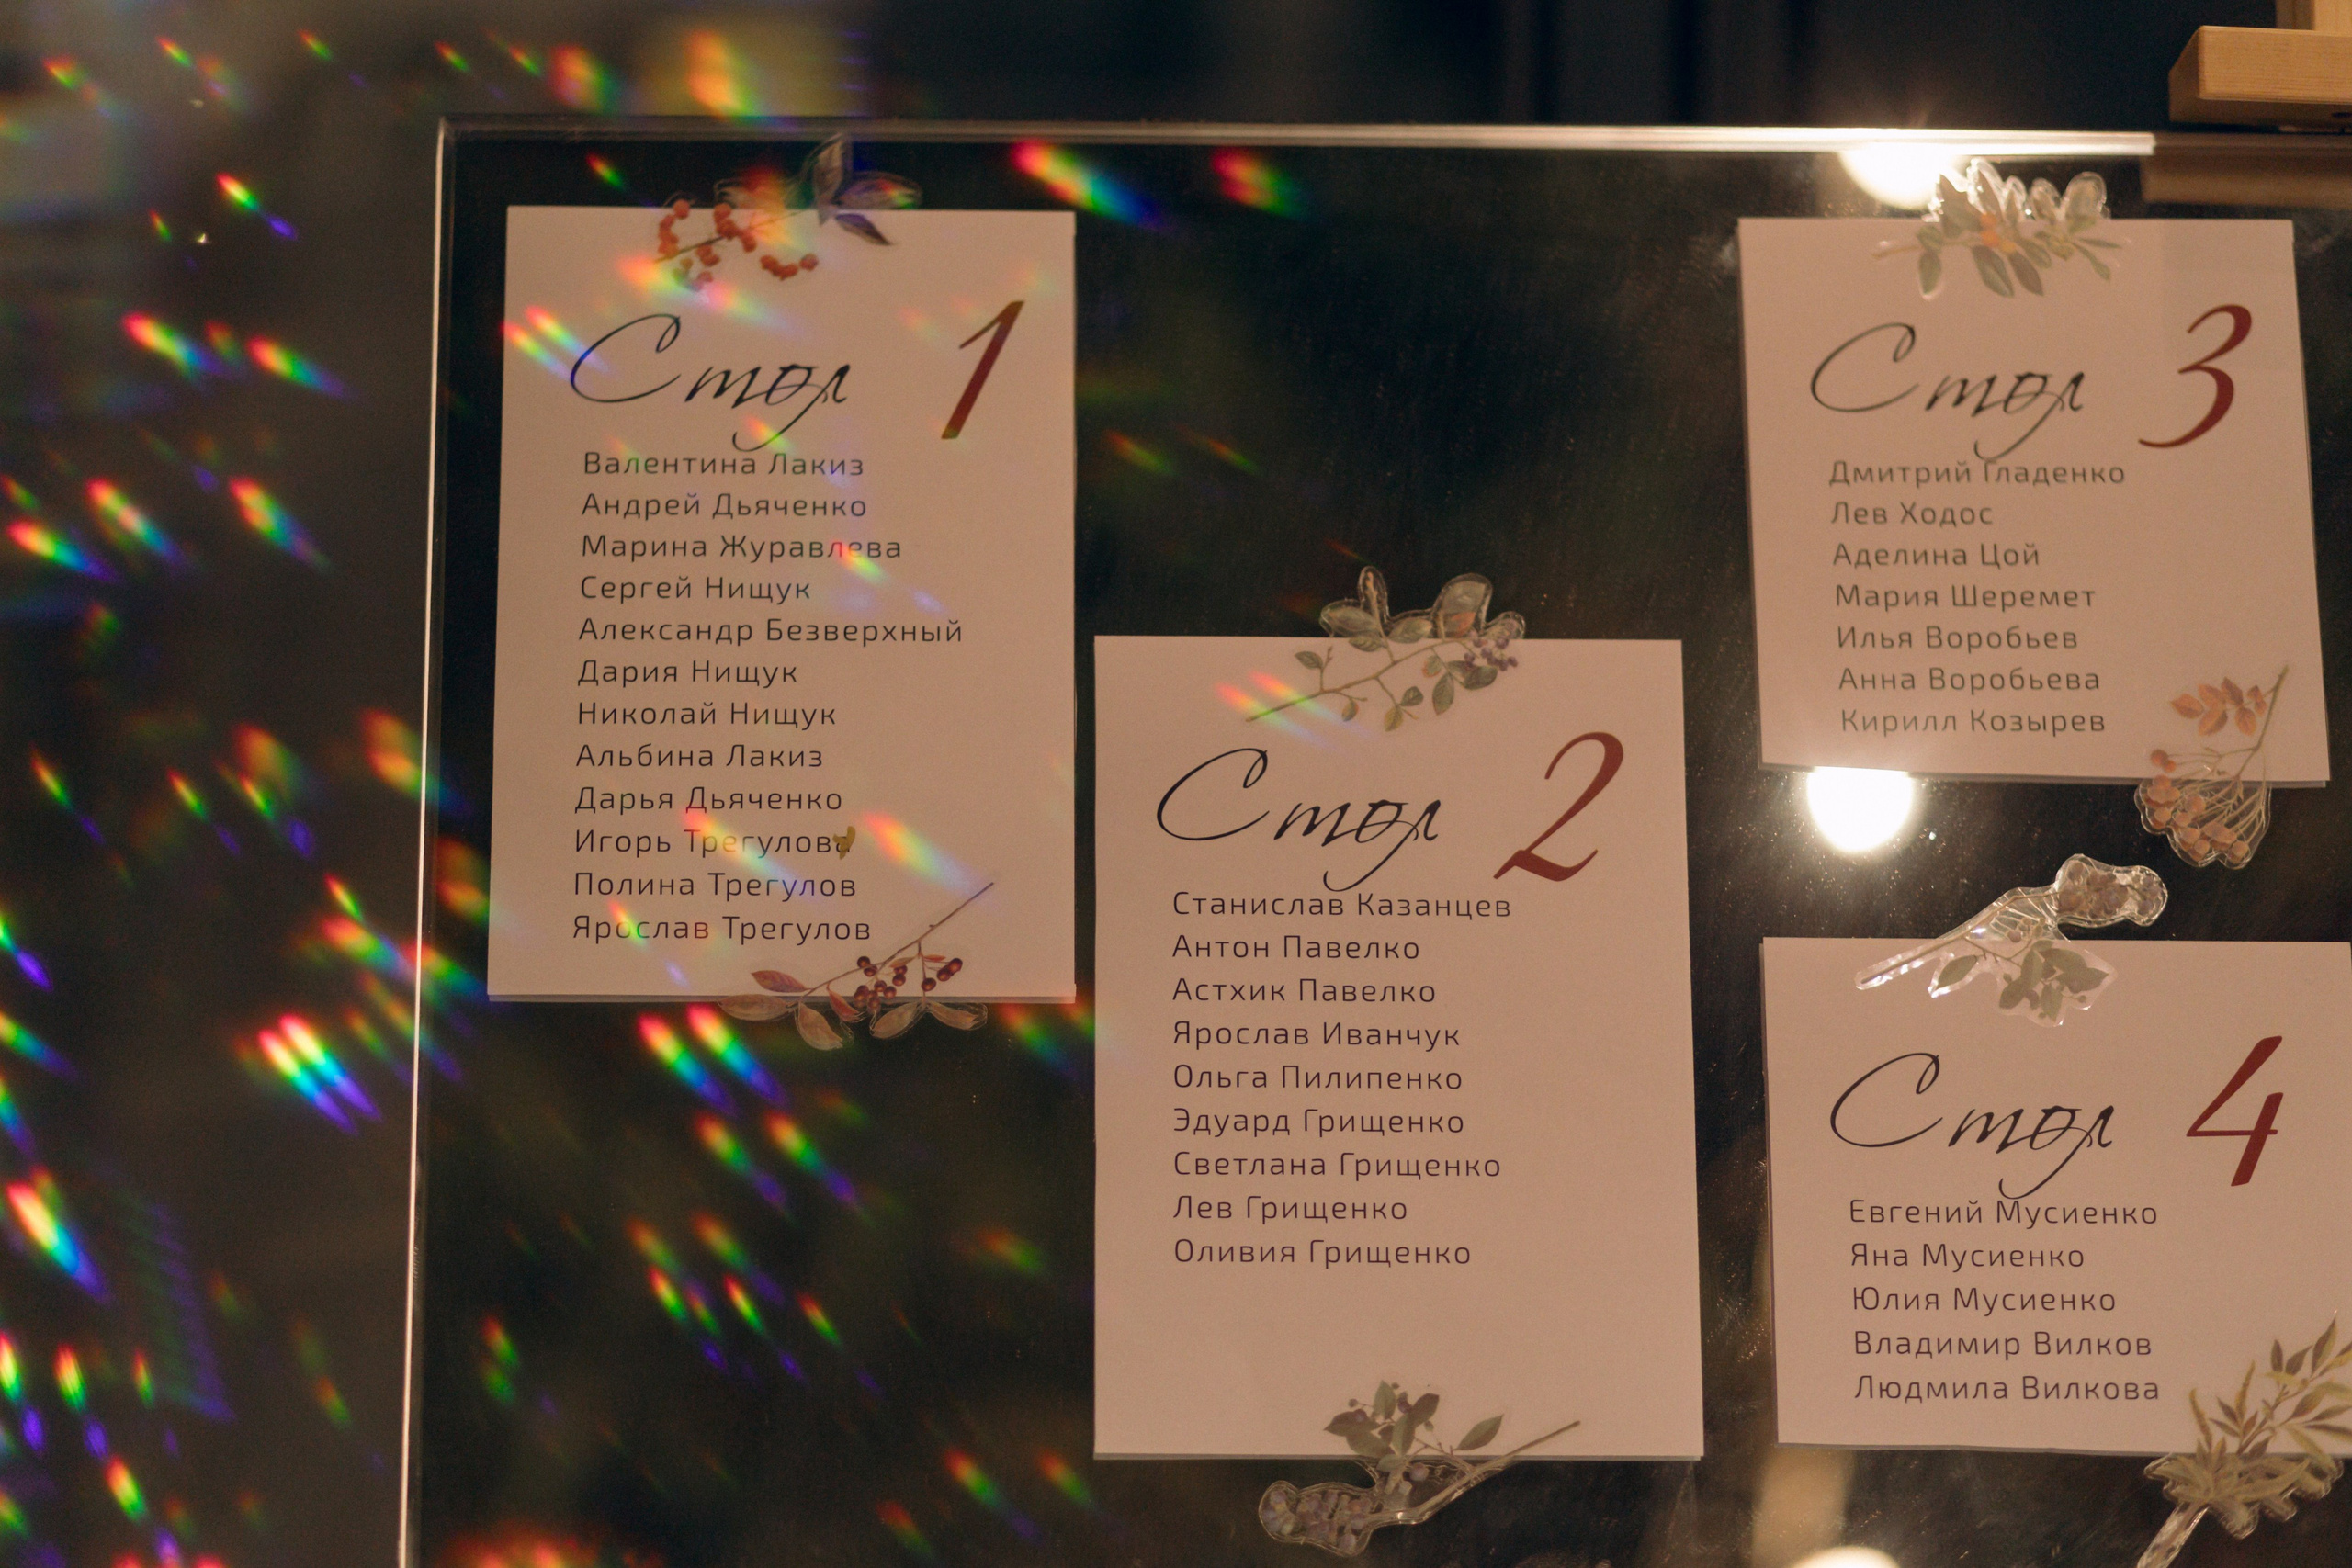 Стол 1
Валентина Лакиз
Андрей Дьяченко
Марина Журавлева
Сергей Нищук
Александр Безверхный
Дария Нищук
Николай Нищук
Альбина Лакиз
Дарья Дьяченко
Игорь Трегулова
Полина Трегулов
Ярослав Трегулов
Стол 2
Станислав Казанцев
Антон Павелко
Астхик Павелко
Ярослав Иванчук
Ольга Пилипенко
Эдуард Грищенко
Светлана Грищенко
Лев Грищенко
Оливия Грищенко
Стол 3
Дмитрий Гладенко
Лев Ходос
Аделина Цой
Мария Шеремет
Илья Воробьев
Анна Воробьева
Кирилл Козырев
Стол 4
Евгений Мусиенко
Яна Мусиенко
Юлия Мусиенко
Владимир Вилков
Людмила Вилкова